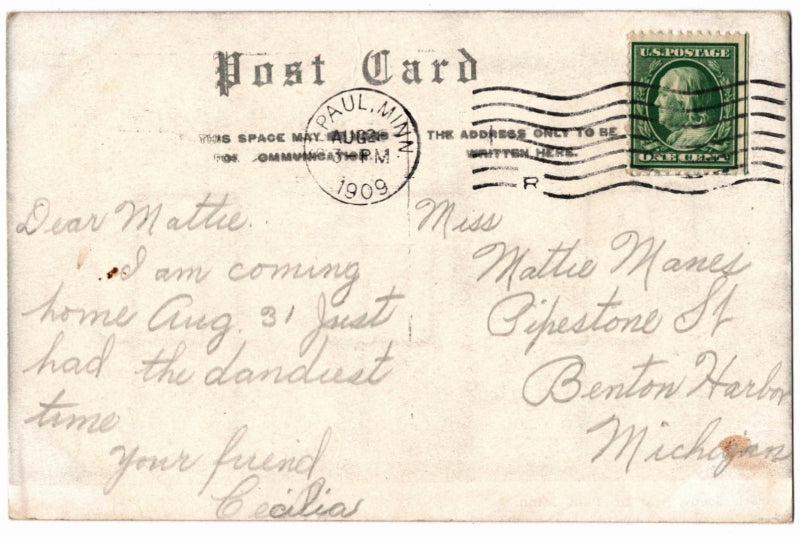 Post Card
U.S. POSTAGE
ONE CENT
PAUL, MINN.
AUG
3 PM
1909
SPACE MAY
THE ADDRESS ONLY TO BE
WRITTEN HERE.
R
Dear Mattie.
I am coming
home Aug. 31 Just
had the dandiest
time
Your friend
Cecilia
Miss
Mattie Manes
Pipestone St
Benton Harbor
Michigan